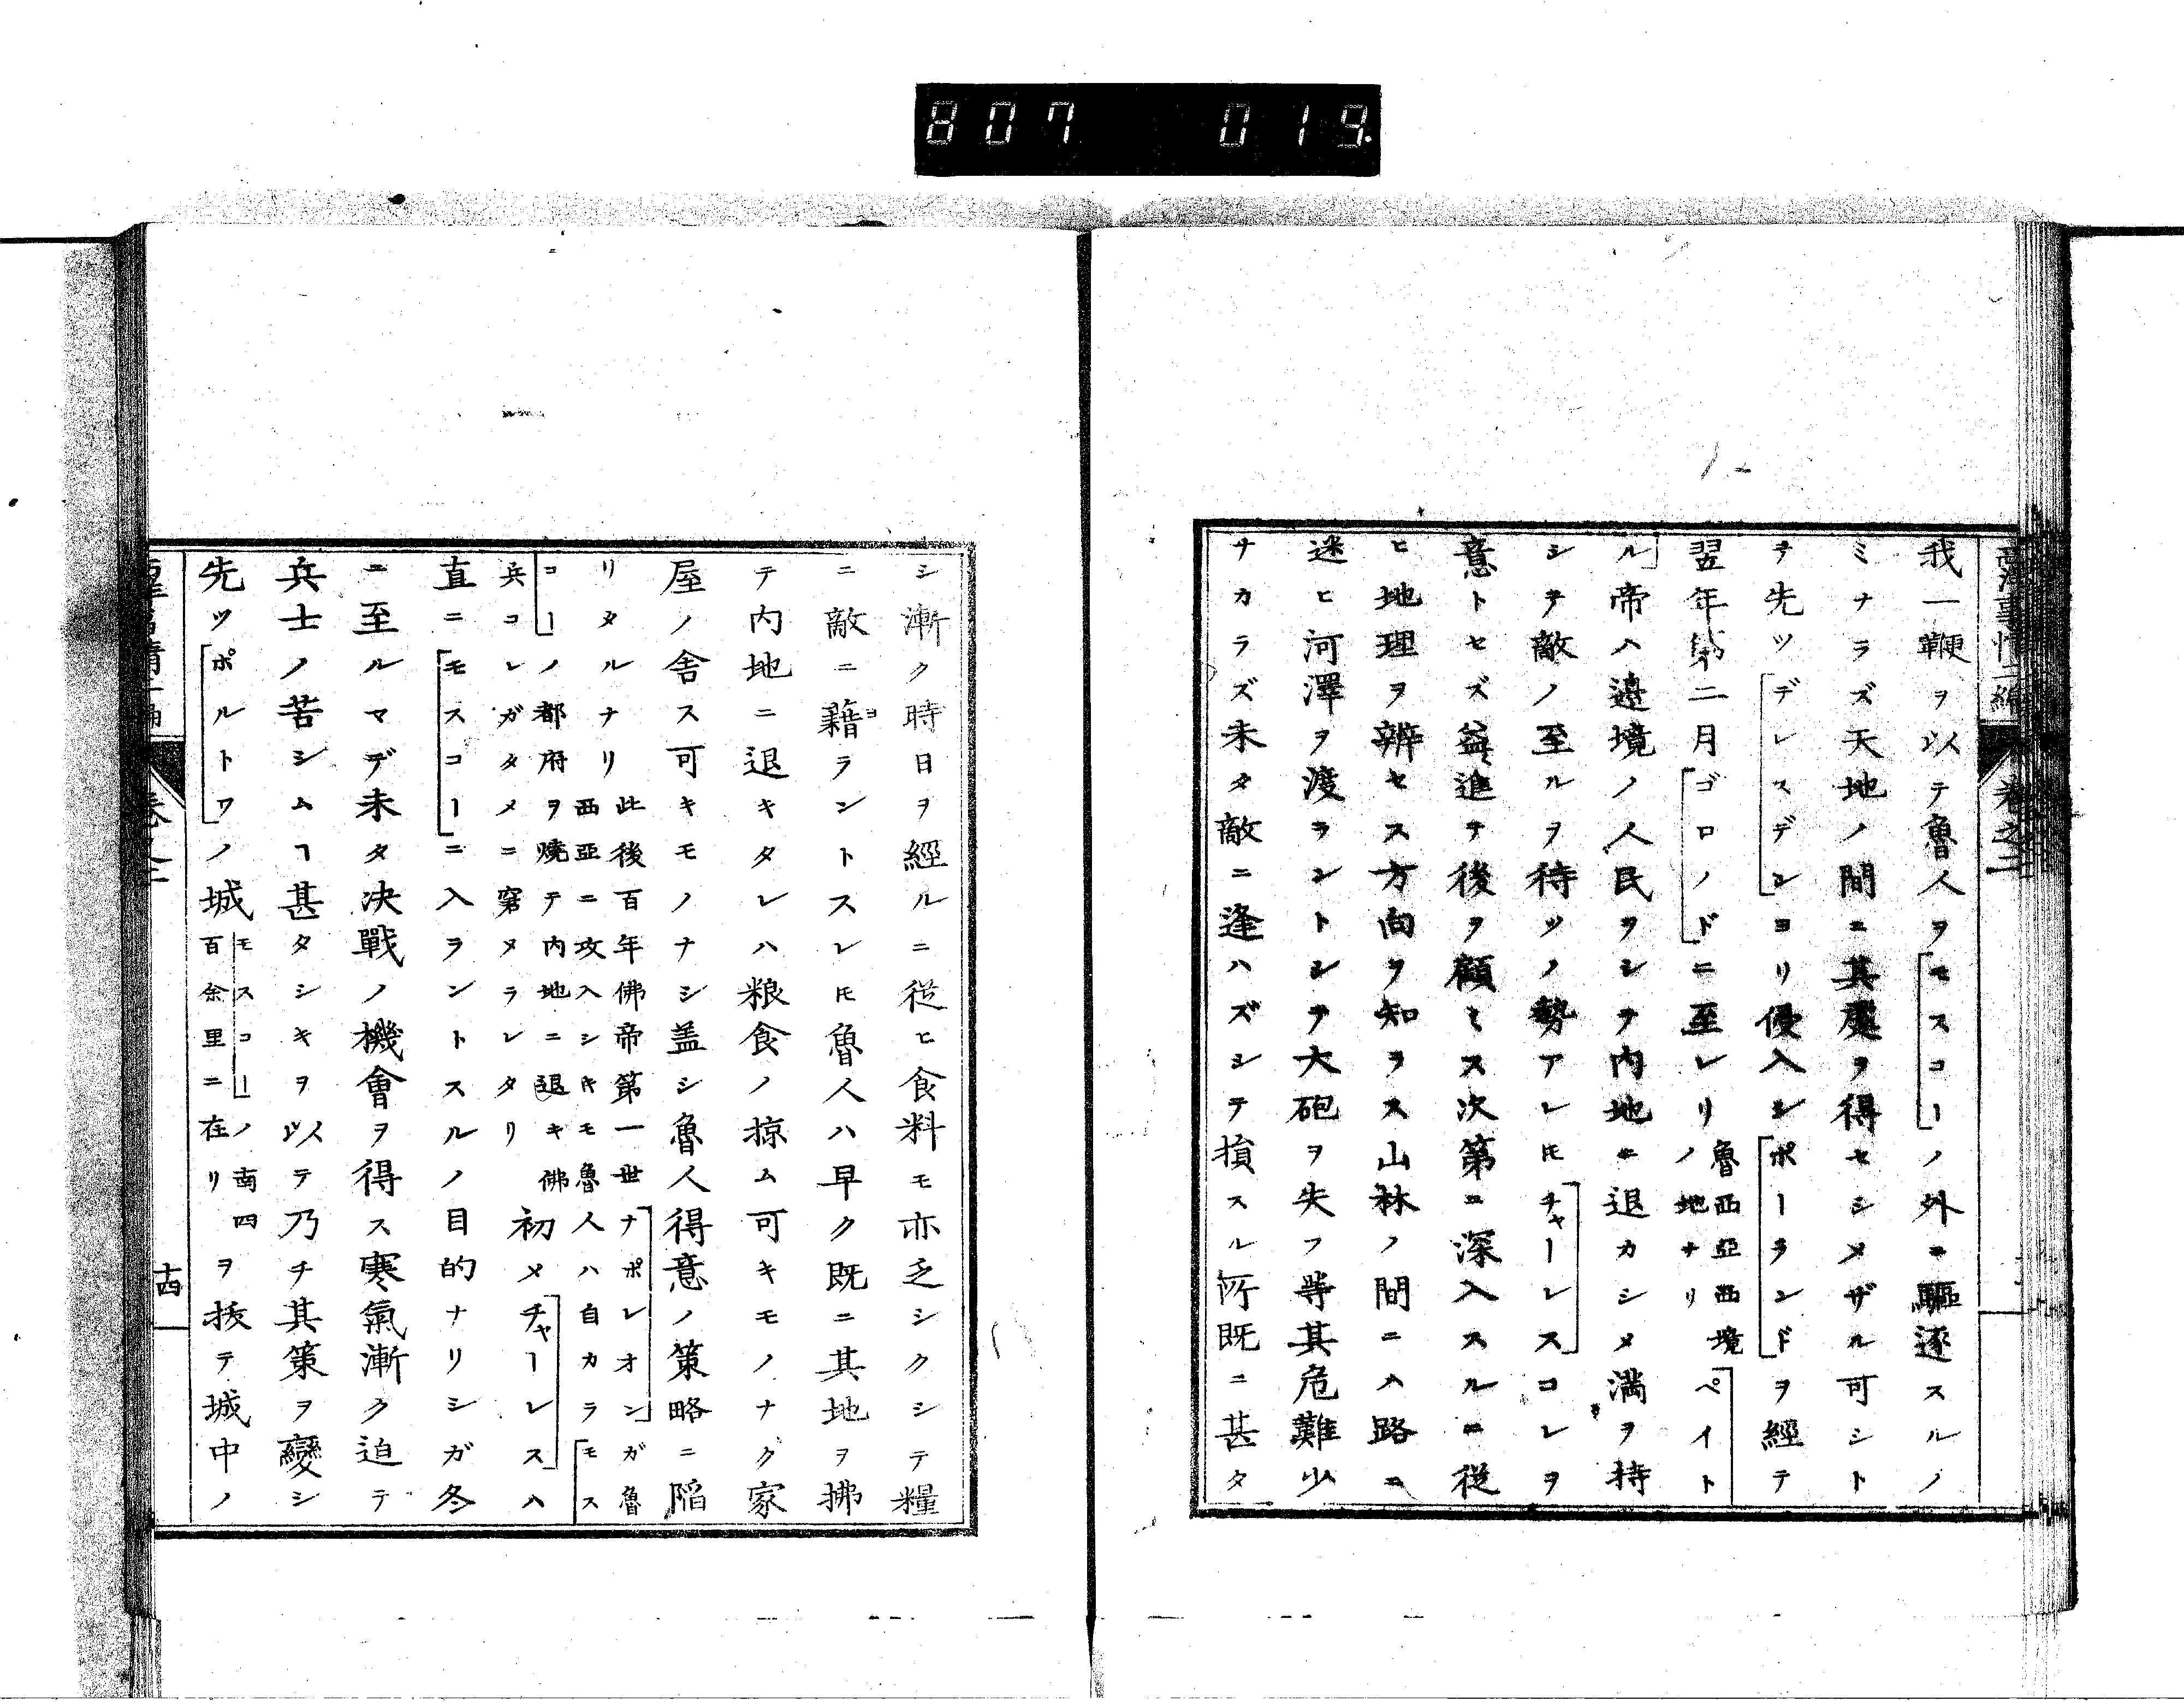 807 019
西洋事情二編 卷之二
我一鞭ヲ以テ魯人ヲ「モスコー」ノ外ニ驅逐スルノ
ミナラズ天地ノ間ニ其處ヲ得セシメザル可シト
テ先ツ「デレスデン」ヨリ侵入シ「ポーランド」ヲ經テ
翌年第二月「ゴロノド」ニ至レリ魯西亞西境ノ地ナリ「ペイト
ル」帝ハ邊境ノ人民ヲシテ内地ニ退カシメ満ヲ持
シテ敵ノ至ルヲ待ツノ勢アレ𪜈「チャーレス」コレヲ
意トセズ益進テ後ヲ顧ミス次第ニ深入スルニ從
ヒ地理ヲ辨セス方向ヲ知ラス山林ノ間ニハ路ニ
迷ヒ河澤ヲ渡ラントシテ大砲ヲ失フ等其危難少
ナカラズ未タ敵ニ逢ハズシテ損スル所既ニ甚タ
シ漸ク時日ヲ經ルニ從ヒ食料モ亦乏シクシテ糧
ニ敵ニ藉ヨランドスレ𪜈魯人ハ早ク既ニ其地ヲ拂
テ内地ニ退キタレハ粮食ノ掠ム可キモノナク家
屋ノ舎ス可キモノナシ盖シ魯人得意ノ策略ニ陷
リタルナリ此後百年佛帝第一世「ナポレオン」ガ魯西亞ニ攻入シ𪜈魯人ハ自カラ「モス
コー」ノ都府ヲ燒テ内地ニ退キ佛兵コレガタメニ窘メラレタリ初メ「チャーレス」ハ
直ニ「モスコー」ニ入ラントスルノ目的ナリシガ冬
ニ至ルマデ未タ決戰ノ機會ヲ得ス寒氣漸ク迫テ
兵士ノ苦シムヿ甚タシキヲ以テ乃チ其策ヲ變シ
先ツ「ポルトワ」ノ城「モスコー」ノ南四百余里ニ在リヲ拔テ城中ノ
西洋事情二編 卷之二 十四